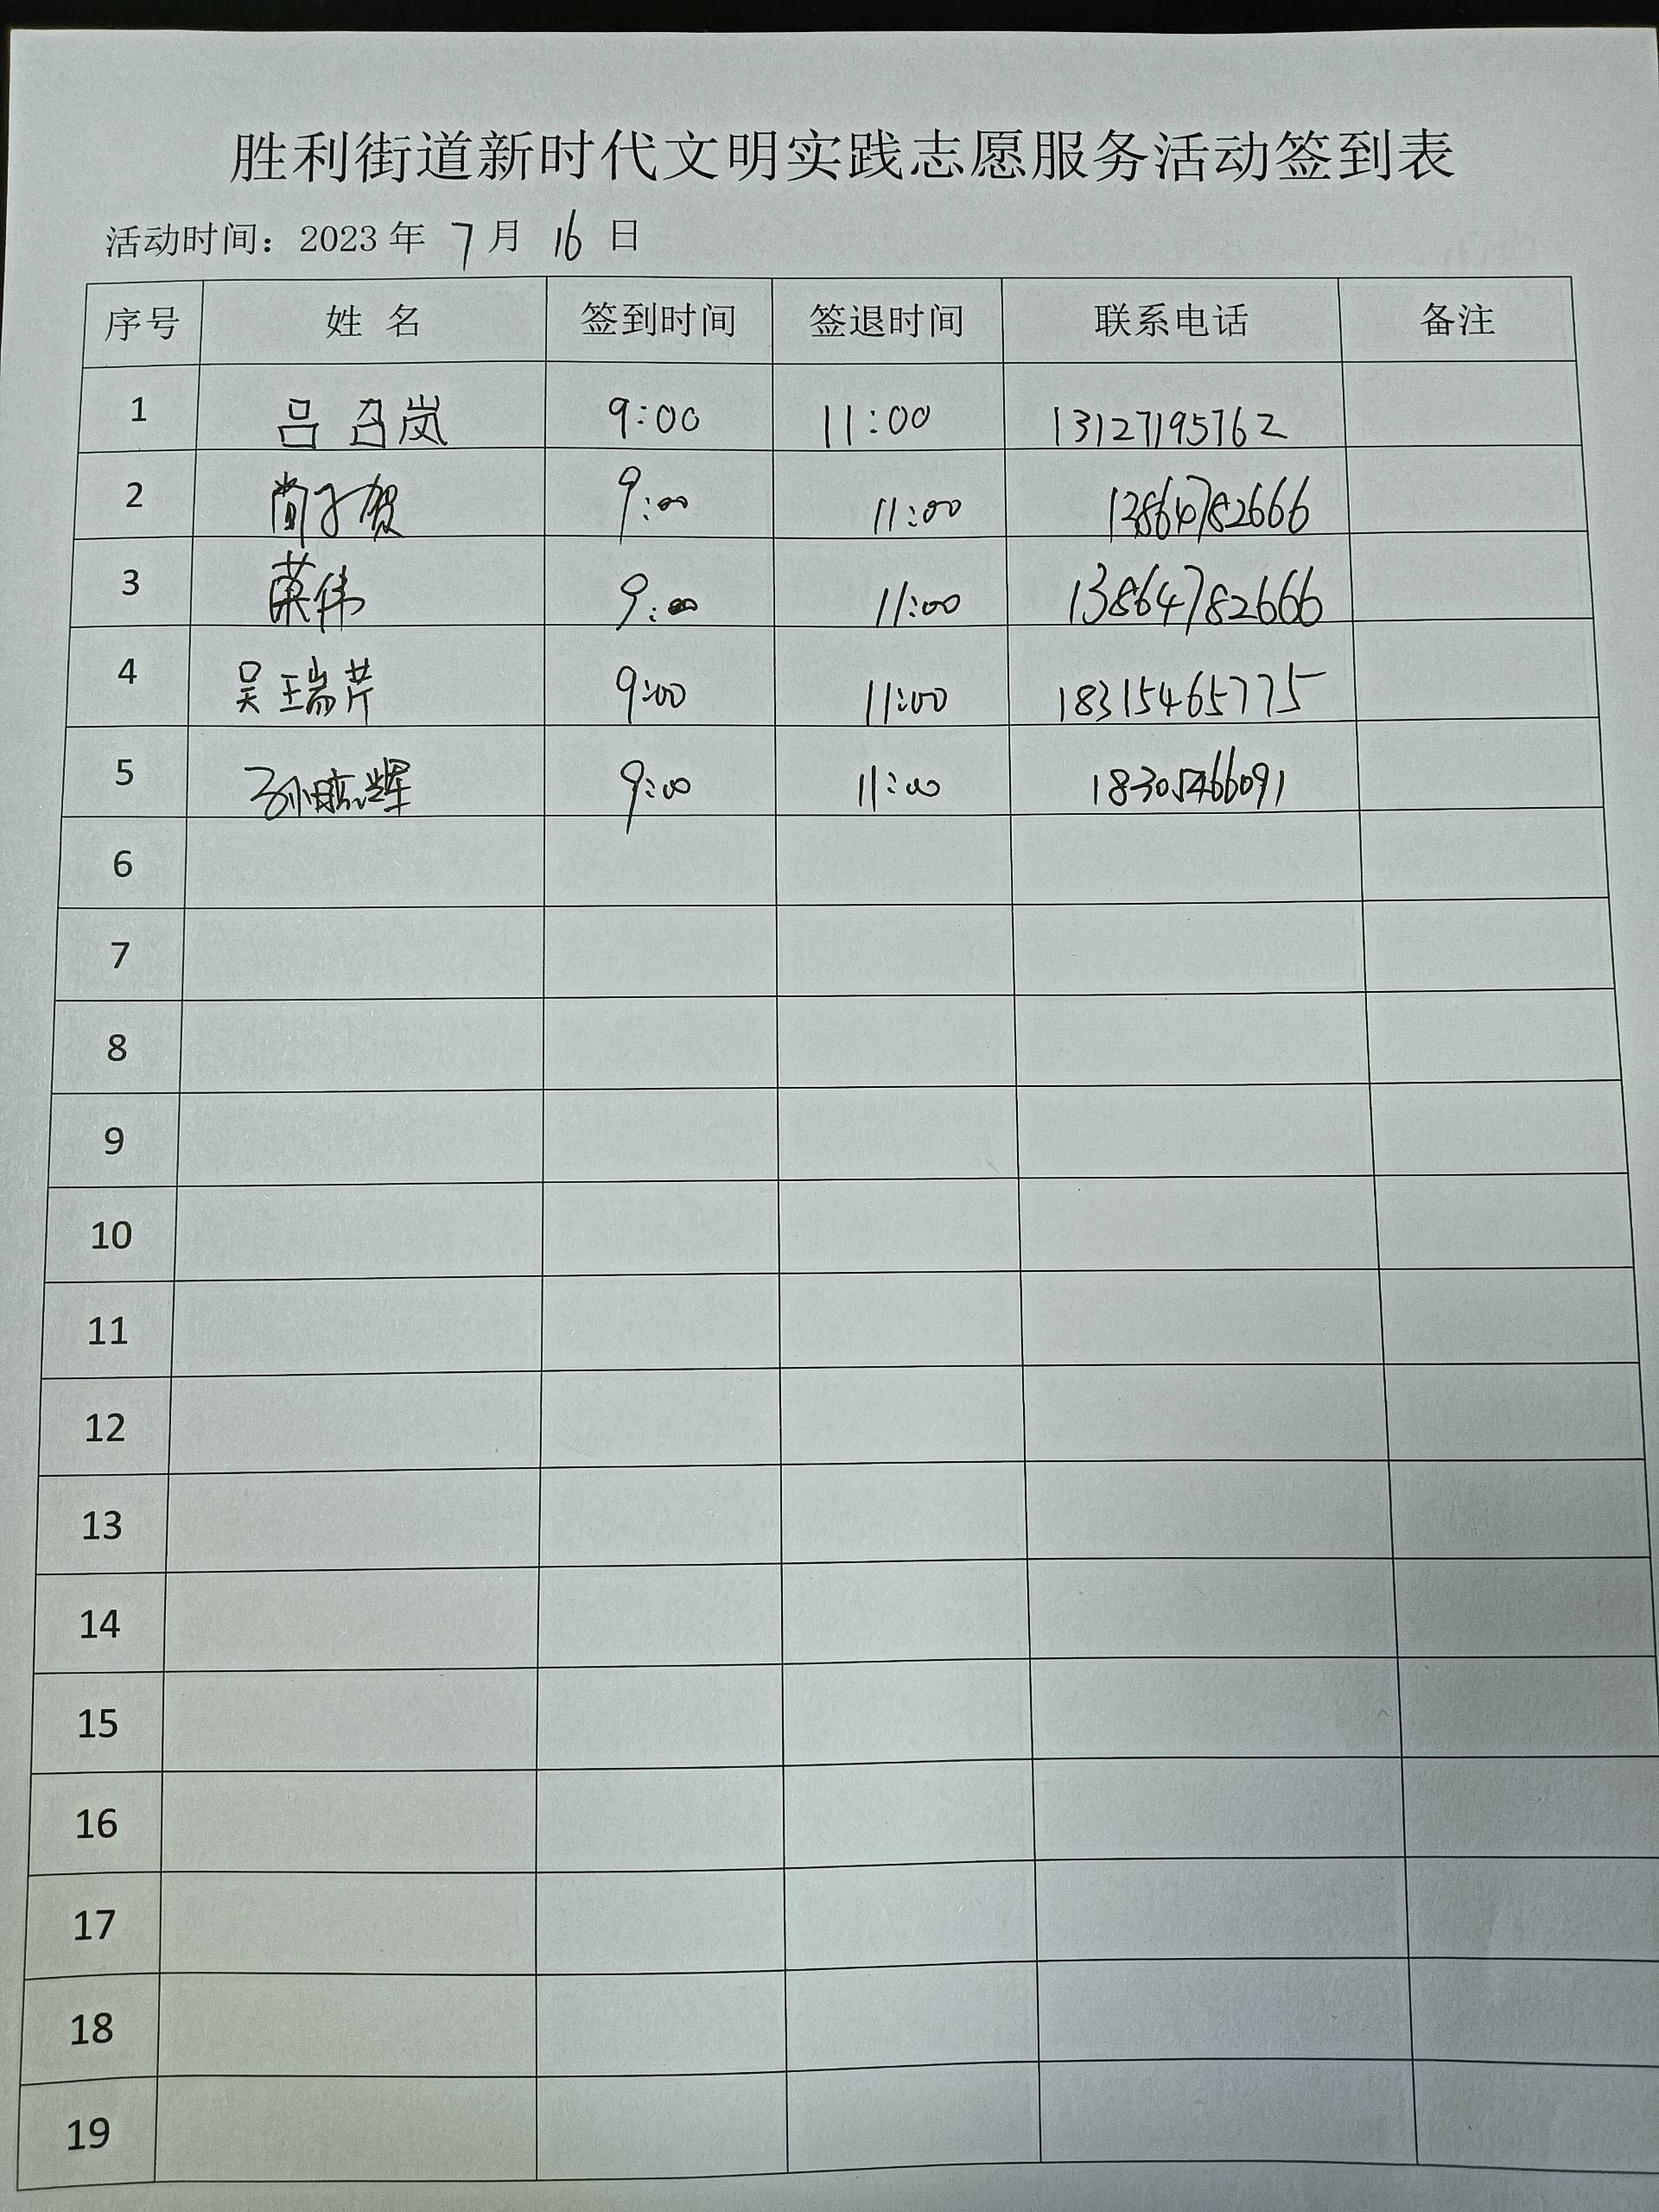 胜利街道新时代文明实践志愿服务活动签到表
活动时间：2023 年 7 月 16 日
序号 姓 名 签到时间 签退时间 联系电话 备注
1 吕召岚 9:00 11:00 13127195762
2 9:00 11:00 13864782666
3 9:00 11:00 13864782666
4 吴瑞芹 9:00 11:00 18315465775
5 孙晾辉 9:00 11:00 18305466091
6
7
8
9
10
11
12
13
14
15
16
17
18
19